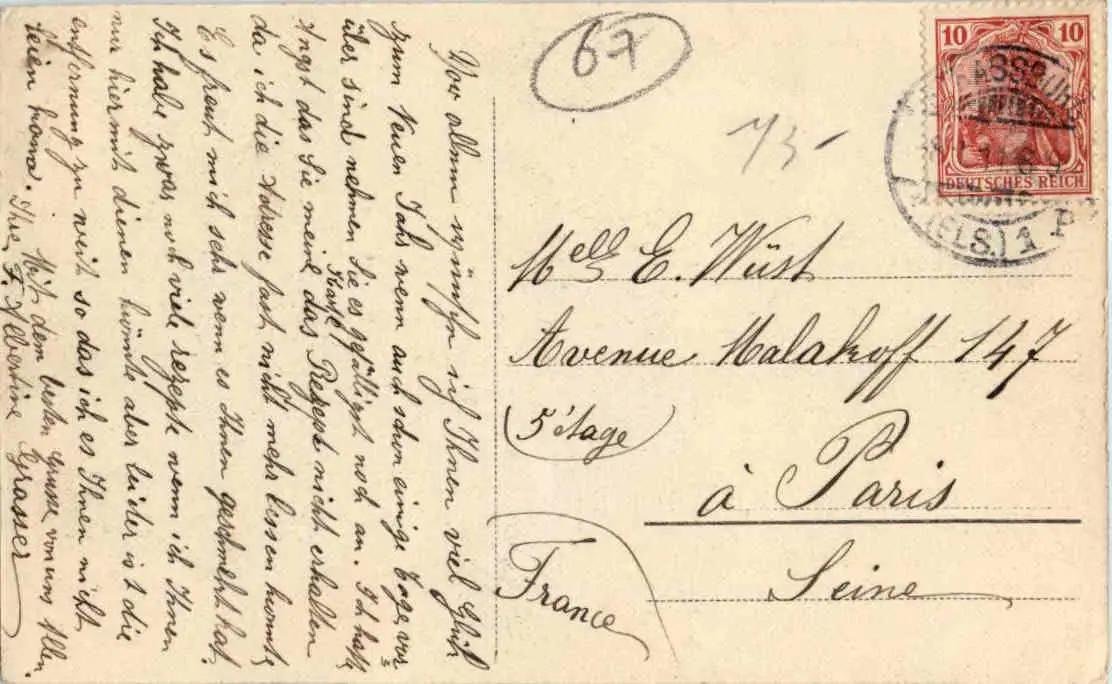 67
10 10
DEUTSCHES REICH
STRASSBURG
(ELS.) 1 P
73-
Mell E. Wüst
Avenue Malakoff 147
5' étage
à Paris
Seine
France
Vor allem wünsche ich Ihnen viel Glück
zum Neuen Jahr wenn auch schon einige Tage vor=
über sind nehmen Sie es gefälligst noch an. Ich hatte
Angst das Sie meine Karte das Rezept nicht erhalten
da ich die Adresse fast nicht mehr lessen konnte
Es freut mich sehr wenn es Ihnen geschmekt hat.
Ich habe zwar noch viele rezepte wenn ich Ihnen
nur hiermit dienen könnte aber leider ist die
entfernung zu weit so das ich es Ihnen nicht
Mit dem besten Grusse von uns Allen.
Ihre F. Albertine Grasser